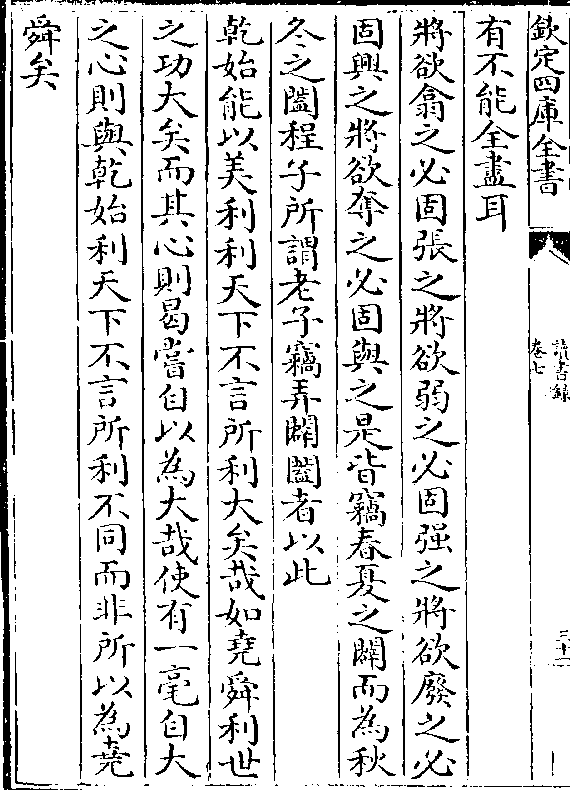 欽定四庫全書
讀書錄
卷七
三十二
有不能全盡耳
將欲翕之必固張之將欲弱之必固强之將欲廢之必
固興之將欲奪之必固與之是皆竊春夏之闢而為秋
冬之闔程子所謂老子竊弄闢闔者以此
乾始能以美利利天下不言所利大矣哉如堯舜利世
之功大矣而其心則曷嘗自以為大哉使有一毫自大
之心則與乾始利天下不言所利不同而非所以為堯
舜矣